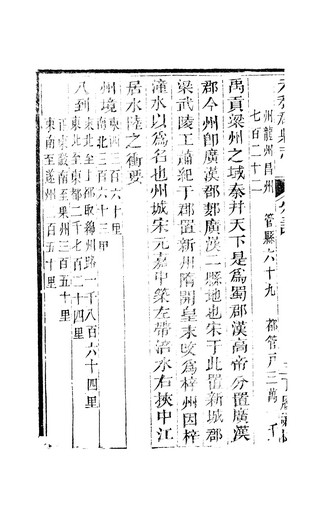 州龍州昌州　管縣六十九　都管戶三萬　千
七百二十二
禹貢梁州之域秦并天下是爲蜀郡漢高帝分置廣漢
郡今州即廣漢郡郪廣漢二縣地也宋于此置新城郡
梁武陵王蕭紀于郡置新州隋開皇末改爲梓州因梓
潼水以爲名也州城宋元嘉中築左帶涪水右挾中江
居水陸之衝要
州境東西三百六十里
南北三百六十三里
八到東北至上都取綿州路一千八百六十四里
東北至東都二千七百二十四里
正東微南至果州三百五十里
東南至遂州二百五十里